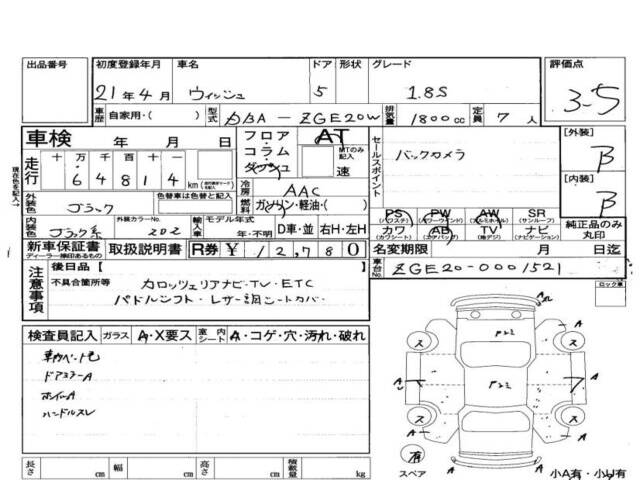 出品番号 初度登録年月 車名 ドア 形状 グレード 評価点
21年4月 ウィッシュ 5 1.8S 3-5
車歴 自家用・( ) 型式 DBA-ZGE20W 排気量 1800cc 定員 7人
車検 年 月 日 フロア・コラム・ダッシュ AT MTのみ記入 速 セールスポイント バックカメラ [外装] B
走行 十 万 千 百 十 一 6 4 8 1 4 km
冷房 AAC [内装] B
外装色 ブラック 色替車は色替と記入 燃料 ガソリン・軽油・( )
PS (パワステ) PW (パワーウインド) AW (アルミホイル) SR (サンルーフ)
カワ (カワシート) AB (エアバッグ) TV (地デジ) ナビ (ナビゲーション) 純正品のみ丸印
内装色 ブラック系 外装カラーNo. 202 輸入車 モデル年式 年・不明 D車・並 右H・左H
新車保証書 ディーラー捺印あるもの 取扱説明書 R券 ¥12,780 名変期限 月 日迄
注意事項 後日品【 】 車台No. ZGE20-0001521
ロック車
不具合箇所等 カロッツェリアナビ・TV・ETC
パドルシフト・レザー調シートカバー
検査員記入 ガラス A・X要ス 室内シート A・コゲ・穴・汚れ・破れ
ドアミラーA
ホイールA
ハンドルスレ
ス ス
A A
ス ス
A A
長さ cm 幅 cm 高さ cm 積載量 kg
有 スペア 小A有・小U有
現在色を記入→